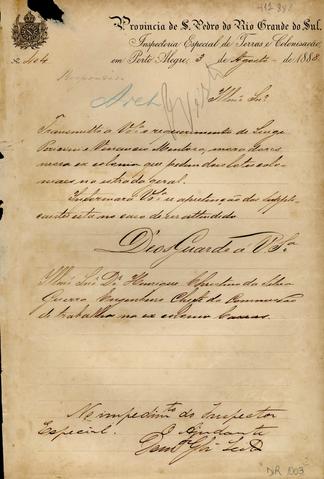 412 898
Provincia de S. Pedro do Rio Grande do Sul.
Inspectoria Especial de Terras e Colonisação
em Porto Alegre, 3 de Agosto de 1888.
Nº 404
Respondido
Arch
Illmo Snr.
Transmitto a Vª Sª o requerimento de Luigi
e moradores
na ex colonia que pedem dos lotes colo-
niaes na estrada geral.
Informará Vª Sª se a pretenção dos suppli-
cantes está no caso de ser attendida
Deos Guarde a V. Sª
Illmo Snr. Dr. Henrique Christino da Silva
Guerra Engenheiro Chefe da Commissão
de trabalhos na ex colonia Caxias.
No impedimto do Inspector
Especial.
O Ajudante
DIR 1003